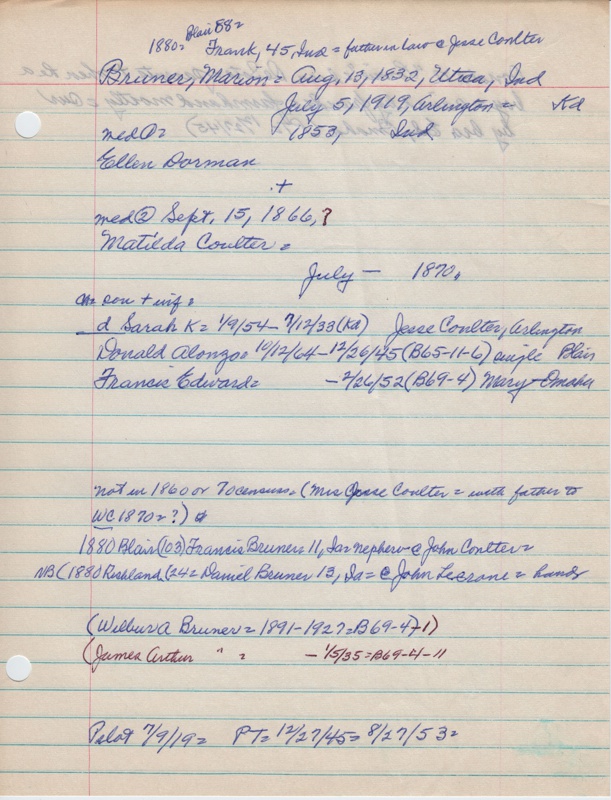 Blair 88=
1880= Frank, 45, Ind = father in law @ Jesse Coulter
Bruner, Marion = Aug, 13, 1832, Utica, Ind
July 5, 1919, Arlington = Kd
med①= 1853, Ind
Ellen Dorman
+
med② Sept, 15, 1866, ?
Matilda Coulter =
July — 1870,
ch= son + wif =
d Sarah K = 1/9/54 - 7/12/33 (Kd) Jesse Coulter, Arlington
Donald Alonzo = 10/12/64 - 12/26/45 (B65-11-6) single Blair
Francis Edward = - 2/26/52 (B69-4) Mary - Omaha
not in 1860 or 70 census = (Mrs Jesse Coulter = with father to
WC 1870 = ?)
1880 Blair (103) Francis Bruner = 11, Ia = nephew @ John Coulter =
NB (1880 Richland (24 = Daniel Bruner 13, Ia = @ John Lecrone = hand
(Wilbur A Bruner = 1891-1927 = B69-4)-1)
(James Arthur " = - 1/5/35 = B69-4-11
Pilot 7/9/19 = PT = 12/27/45 = 8/27/53 =